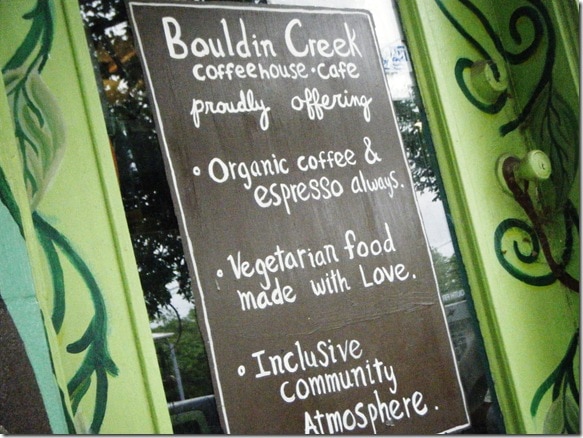 Bouldin Creek
coffeehouse · cafe
proudly offering
• Organic coffee &
espresso always.
• Vegetarian food
made with Love.
• Inclusive
community
Atmosphere.